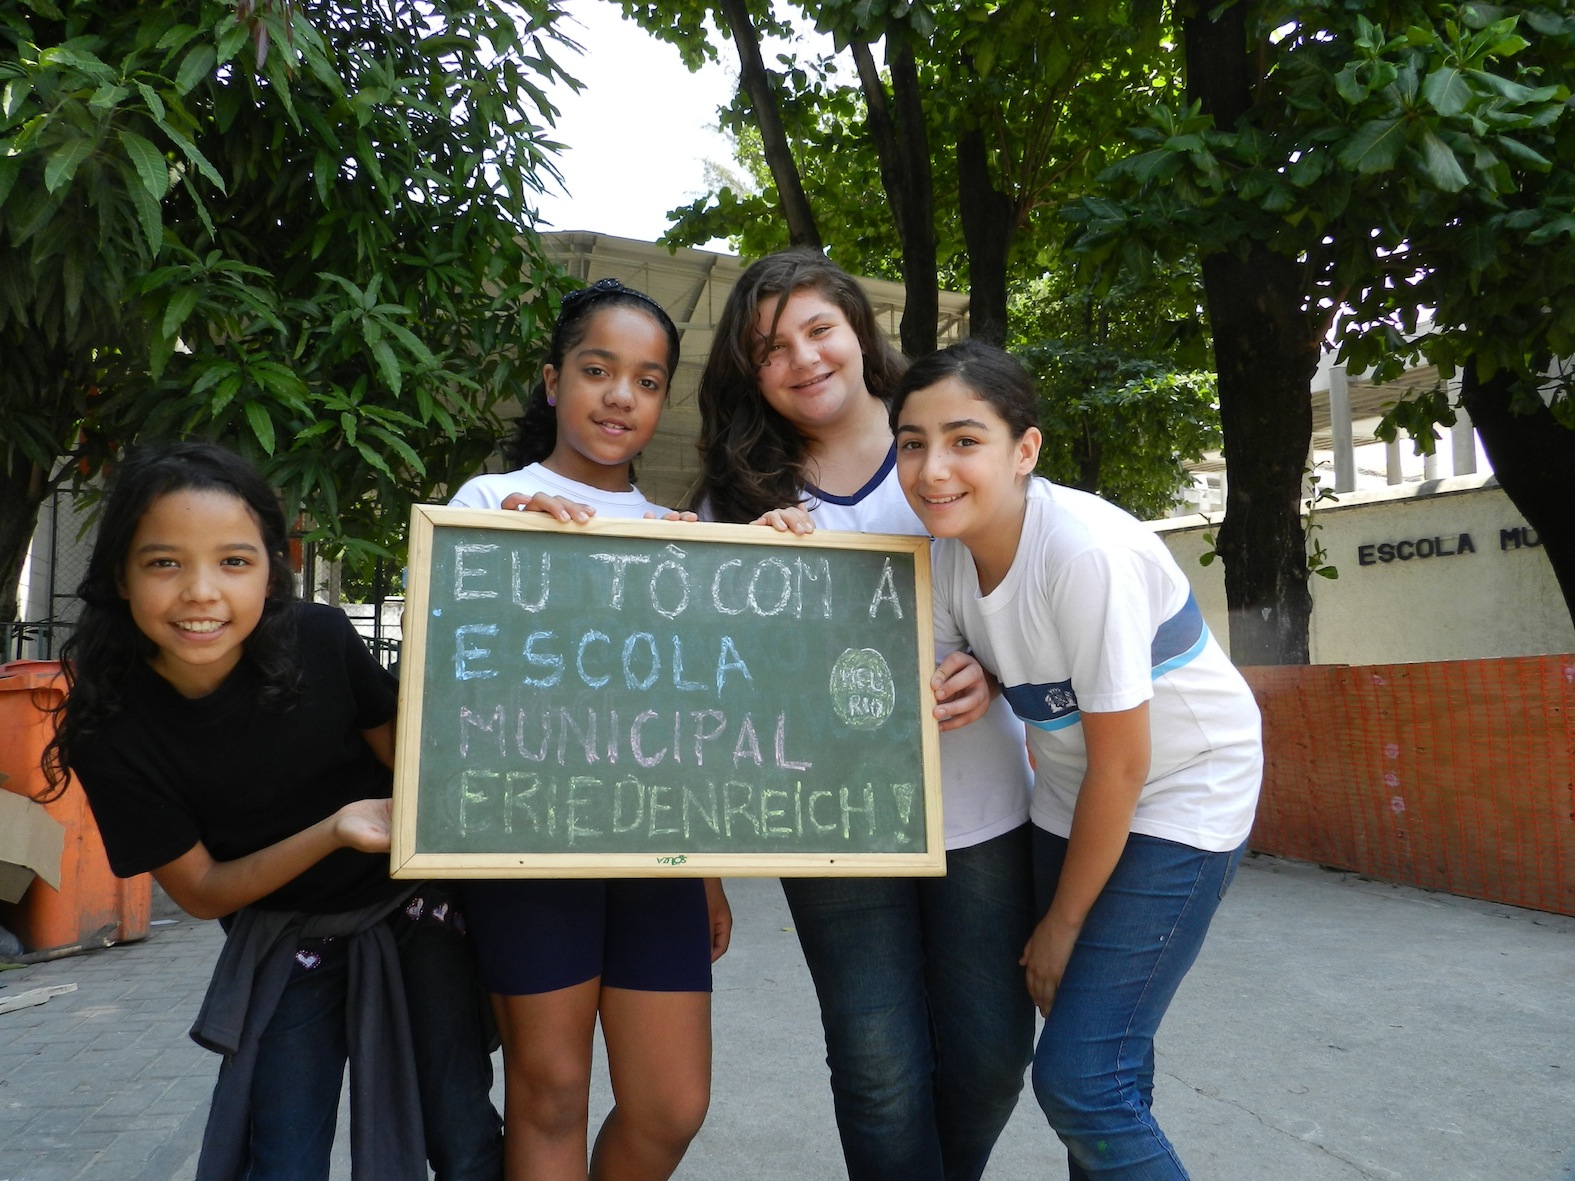 EU TÔ COM A
ESCOLA
MUNICIPAL
FRIEDENREICH!
MEU
RIO
ESCOLA MU